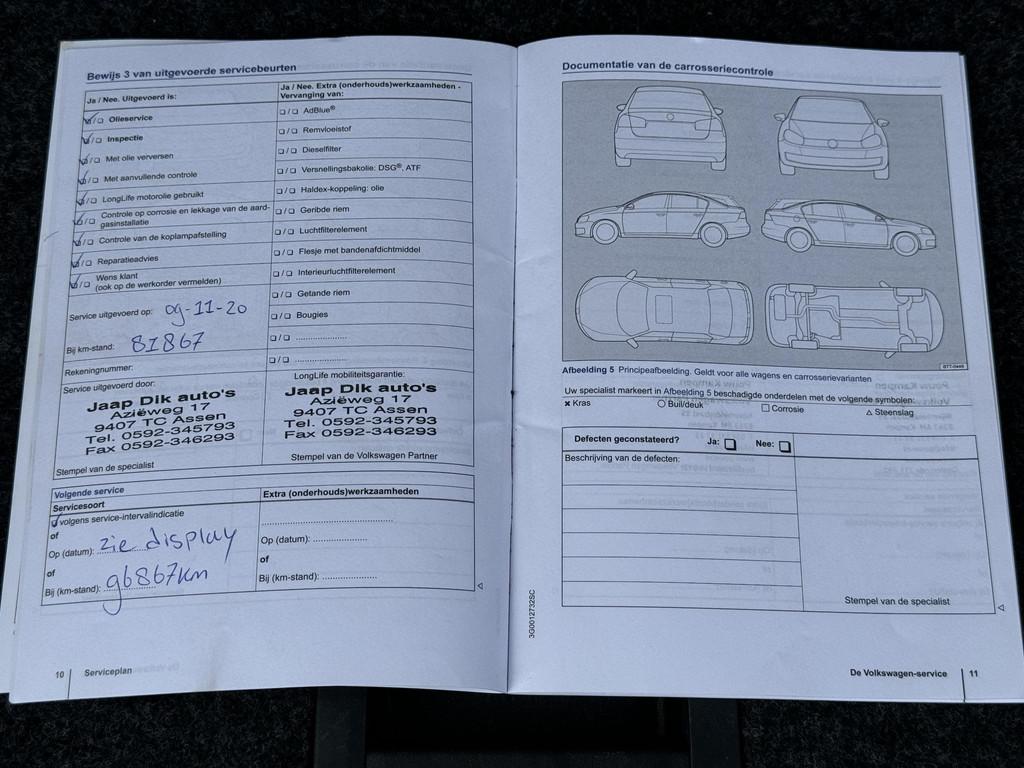 Bewijs 3 van uitgevoerde servicebeurten
Ja / Nee. Uitgevoerd is:
☑/❑ Olieservice
☑/❑ Inspectie
☑/❑ Met olie verversen
☑/❑ Met aanvullende controle
☑/❑ LongLife motorolie gebruikt
☑/❑ Controle op corrosie en lekkage van de aard-
gasinstallatie
☑/❑ Controle van de koplampafstelling
☑/❑ Reparatieadvies
☑/❑ Wens klant
(ook op de werkorder vermelden)
Service uitgevoerd op: 09-11-20
Bij km-stand: 81867
Rekeningnummer:
Ja / Nee. Extra (onderhouds)werkzaamheden -
Vervanging van:
❑/❑ AdBlue®
❑/❑ Remvloeistof
❑/❑ Dieselfilter
❑/❑ Versnellingsbakolie: DSG®, ATF
❑/❑ Haldex-koppeling: olie
❑/❑ Geribde riem
❑/❑ Luchtfilterelement
❑/❑ Flesje met bandenafdichtmiddel
❑/❑ Interieurluchtfilterelement
❑/❑ Getande riem
❑/❑ Bougies
❑/❑ ......................
❑/❑ ......................
Service uitgevoerd door:
Jaap Dik auto's
Aziëweg 17
9407 TC Assen
Tel. 0592-345793
Fax 0592-346293
Stempel van de specialist
LongLife mobiliteitsgarantie:
Jaap Dik auto's
Aziëweg 17
9407 TC Assen
Tel. 0592-345793
Fax 0592-346293
Stempel van de Volkswagen Partner
Volgende service
Servicesoort
☑ volgens service-intervalindicatie
of
Op (datum): zie display
of
Bij (km-stand): 96867km
Extra (onderhouds)werkzaamheden
Op (datum): ......................
of
Bij (km-stand): ......................
10 Serviceplan
Documentatie van de carrosseriecontrole
BTT-0448
Afbeelding 5 Principeafbeelding. Geldt voor alle wagens en carrosserievarianten
Uw specialist markeert in Afbeelding 5 beschadigde onderdelen met de volgende symbolen:
× Kras ○ Buil/deuk □ Corrosie △ Steenslag
Defecten geconstateerd? Ja: ❑ Nee: ❑
Beschrijving van de defecten:
Stempel van de specialist
3G0012732SC
De Volkswagen-service 11